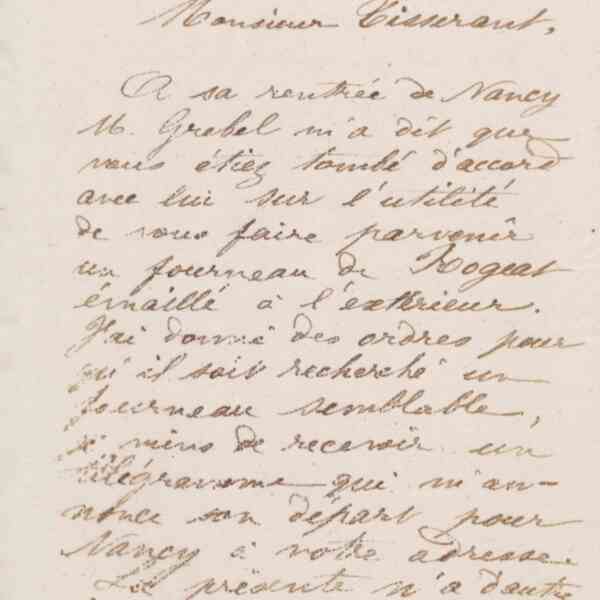 Monsieur Tisserant,
A sa rentrée de Nancy
M. Grebel m'a dit que
vous étiez tombé d'accord
avec lui sur l'utilité
de vous faire parvenir
un fourneau de Rogeat
émaillé à l'extérieur.
J'ai donné des ordres pour
qu'il soit recherché un
fourneau semblable,
je viens de recevoir un
télégramme qui m'an-
nonce son départ pour
Nancy à votre adresse.
La présente n'a d'autre